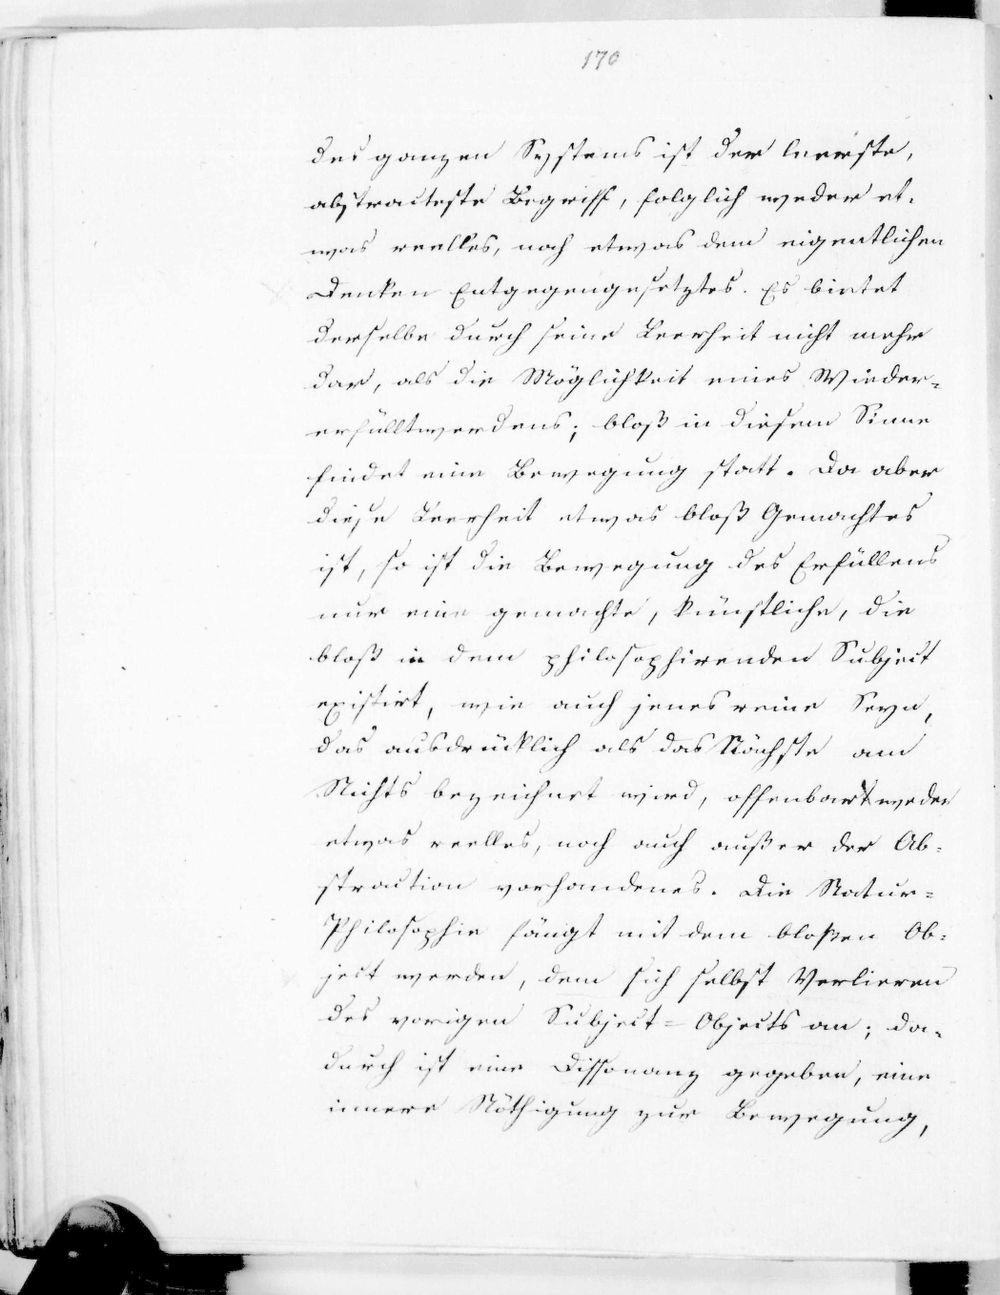 170
des ganzen Systems ist der leerste,
abstracteste Begriff, folglich weder et-
was reelles, noch etwas dem eigentlichen
Denken Entgegengesetztes. Es bietet
derselbe durch seine Leerheit nicht mehr
dar, als die Möglichkeit eines Wieder-
erfülltwerdens; bloß in diesem Sinne
findet eine Bewegung statt. Da aber
diese Leerheit etwas bloß Gemachtes
ist, so ist die Bewegung des Erfüllens
nur eine gemachte, künstliche, die
bloß in dem philosophirenden Subject
existirt, wie auch jenes reine Seyn,
das ausdrücklich als das Nächste am
Nichts bezeichnet wird, offenbart weder
etwas reelles, noch auch außer der Ab-
straction vorhandenes. Die Natur-
Philosophie fängt mit dem bloßen Ob-
ject werden, dem sich selbst Verlieren
des vorigen Subject-Objects an; da-
durch ist eine Dissonanz gegeben, eine
innere Nöthigung zur Bewegung,